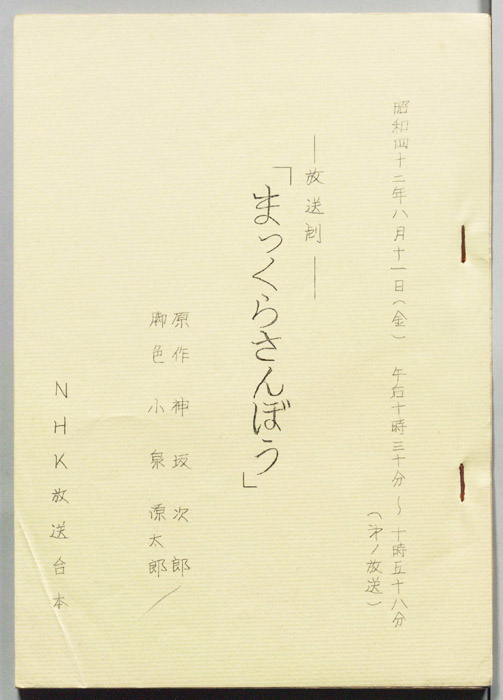 昭和四十二年八月十一日(金) 午后十時三十分〜十時五十八分
(第1放送)
―放送劇―
「まっくらさんぼう」
原作 神坂次郎
脚色 小泉源太郎
NHK放送台本